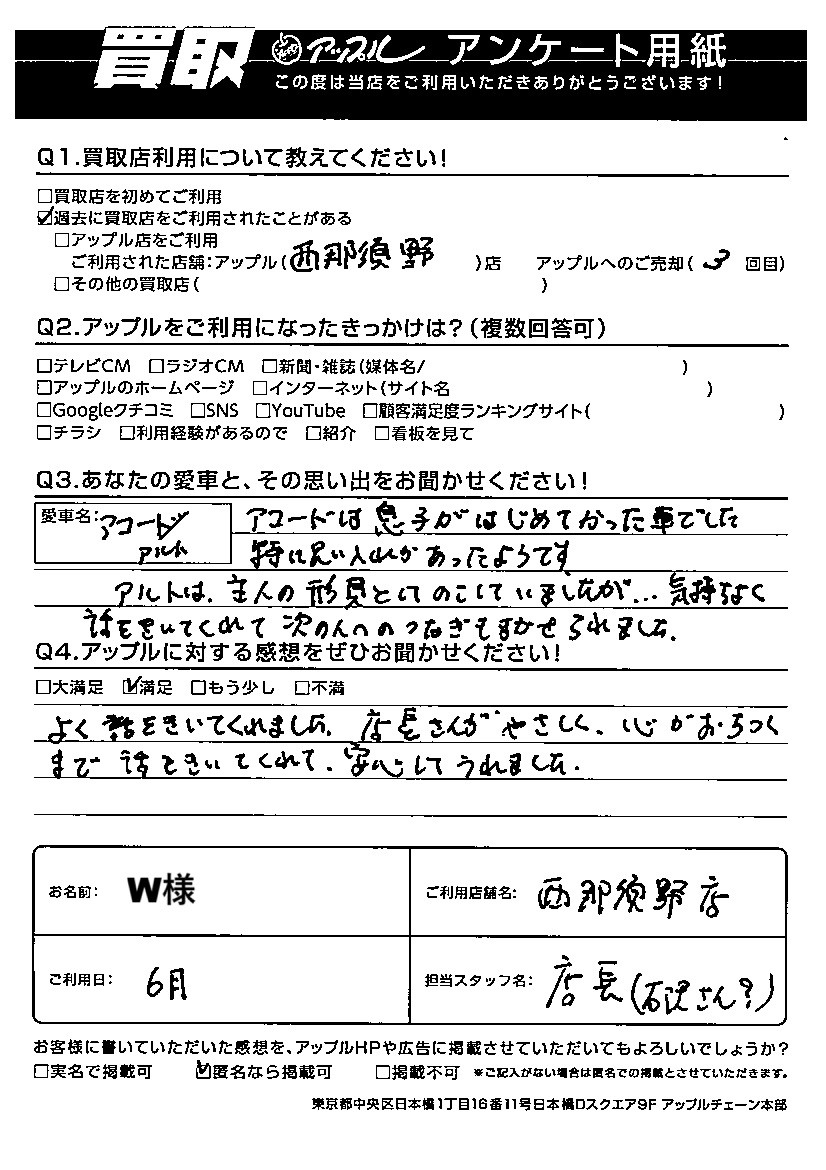 買取 アップル アンケート用紙
この度は当店をご利用いただきありがとうございます！
Q1.買取店利用について教えてください！
□買取店を初めてご利用
☑過去に買取店をご利用されたことがある
□アップル店をご利用
ご利用された店舗：アップル（西那須野）店 アップルへのご売却（3回目）
□その他の買取店（ ）
Q2.アップルをご利用になったきっかけは？（複数回答可）
□テレビCM □ラジオCM □新聞・雑誌（媒体名/ ）
□アップルのホームページ □インターネット（サイト名 ）
□Googleクチコミ □SNS □YouTube □顧客満足度ランキングサイト（ ）
□チラシ □利用経験があるので □紹介 □看板を見て
Q3.あなたの愛車と、その思い出をお聞かせください！
愛車名：アコード
アルト
アコードは息子がはじめてかった車でした
特に思い入れがあったようです
アルトは、主人の形見としてのこしていましたが…気持ちよく
話をきいてくれて次の人へのつなぎもまかせられました。
Q4.アップルに対する感想をぜひお聞かせください！
□大満足 ☑満足 □もう少し □不満
よく話をきいてくれました。店長さんがやさしく、心がおちつく
まで話をきいてくれて、安心してうれました。
お名前： W様
ご利用店舗名： 西那須野店
ご利用日： 6月
担当スタッフ名： 店長（石沢さん？）
お客様に書いていただいた感想を、アップルHPや広告に掲載させていただいてもよろしいでしょうか？
□実名で掲載可 ☑匿名なら掲載可 □掲載不可 ※ご記入がない場合は匿名での掲載とさせていただきます。
東京都中央区日本橋1丁目16番11号日本橋Dスクエア9F アップルチェーン本部